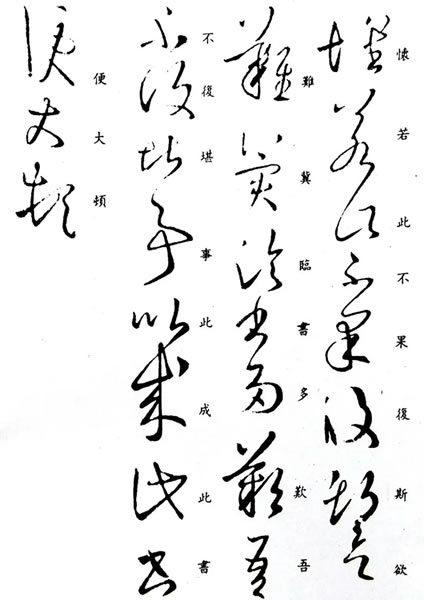 懷若此不果後斯欲
難冀臨書多歎吾
不後堪事此成此書
便大頓